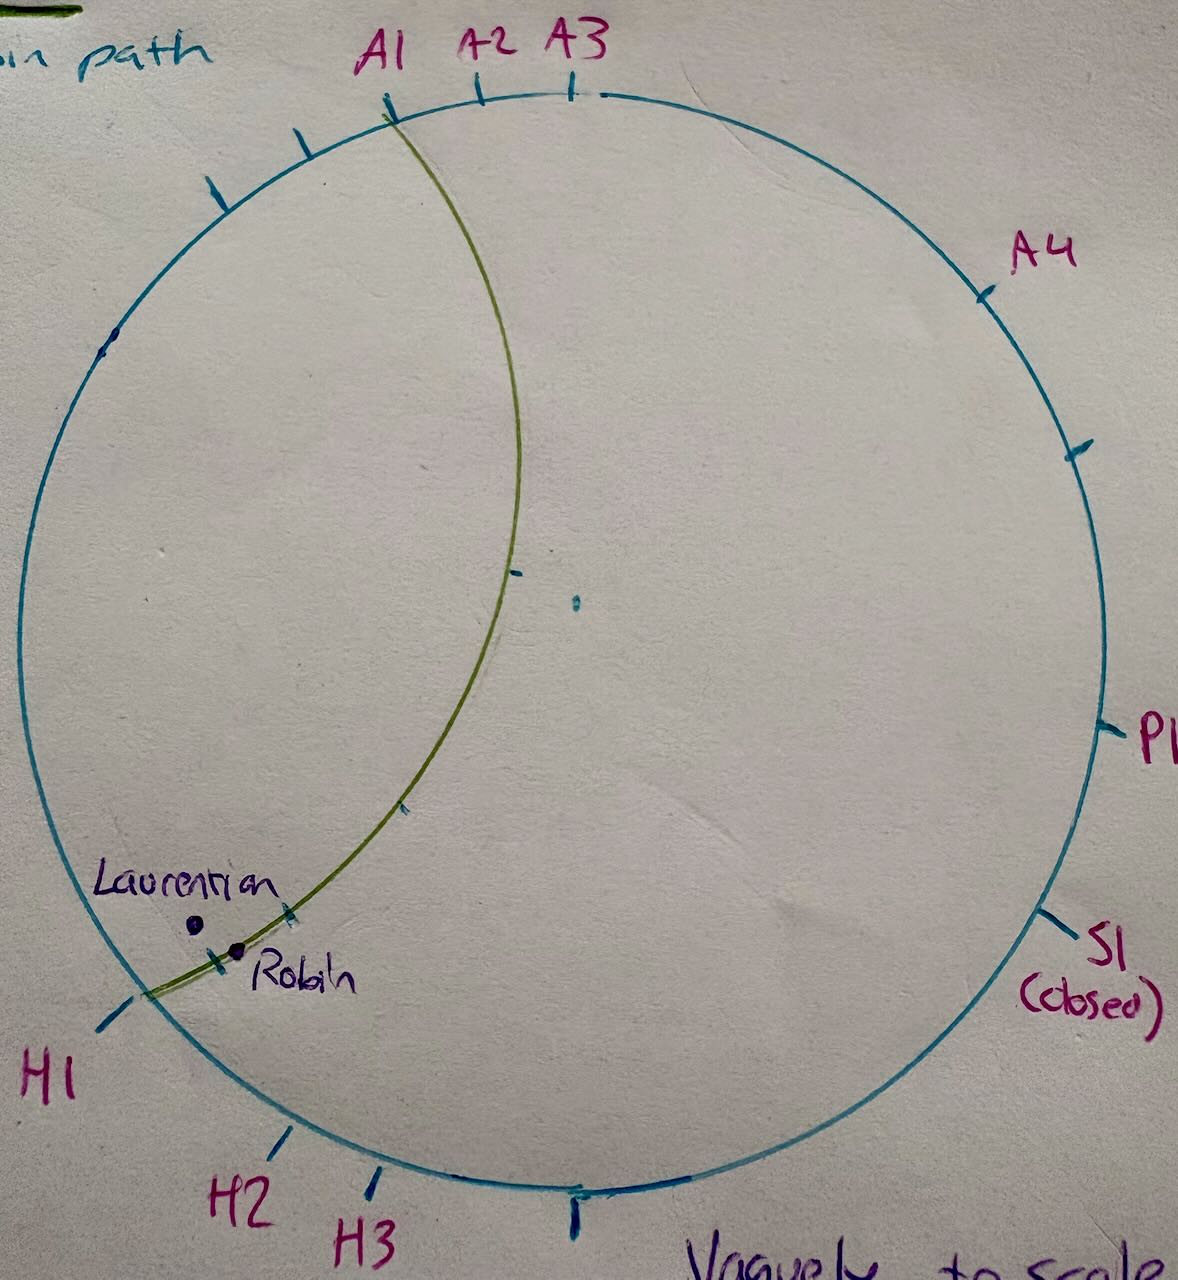 path
A1 A2 A3
A4
P1
Laurention
Robin
S1
(closed)
H1
H2
H3
Vaguely to scale